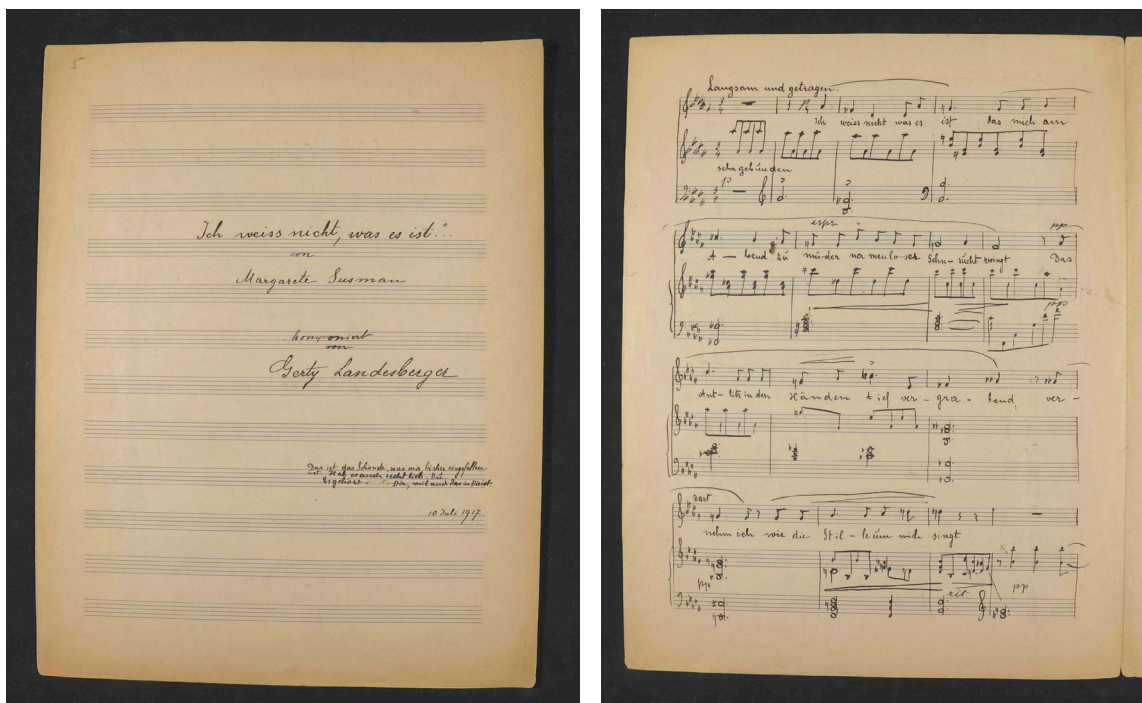 5
Ich weiss nicht, was es ist"..
von
Margarete Susman
komponiert
von
Gerty Landesberger
Das ist das Schönste, was mir bisher eingefallen
ist. Hab es auch recht lieb, Du.
Es gehört Dir, weil auch das in Dir ist.
10 Juli 1917.
Langsam und getragen.
Ich weiss nicht was es ist das mich am
sehr gebunden
p
espr.
pp
A - bend zu mü-der na menlo-ser Sehn-sucht zwingt Das
pp
Ant-litz in den Händen tief ver-gra-bend, ver-
zart
nehm ich wie die Stil-le um mich singt
pp
rit
pp